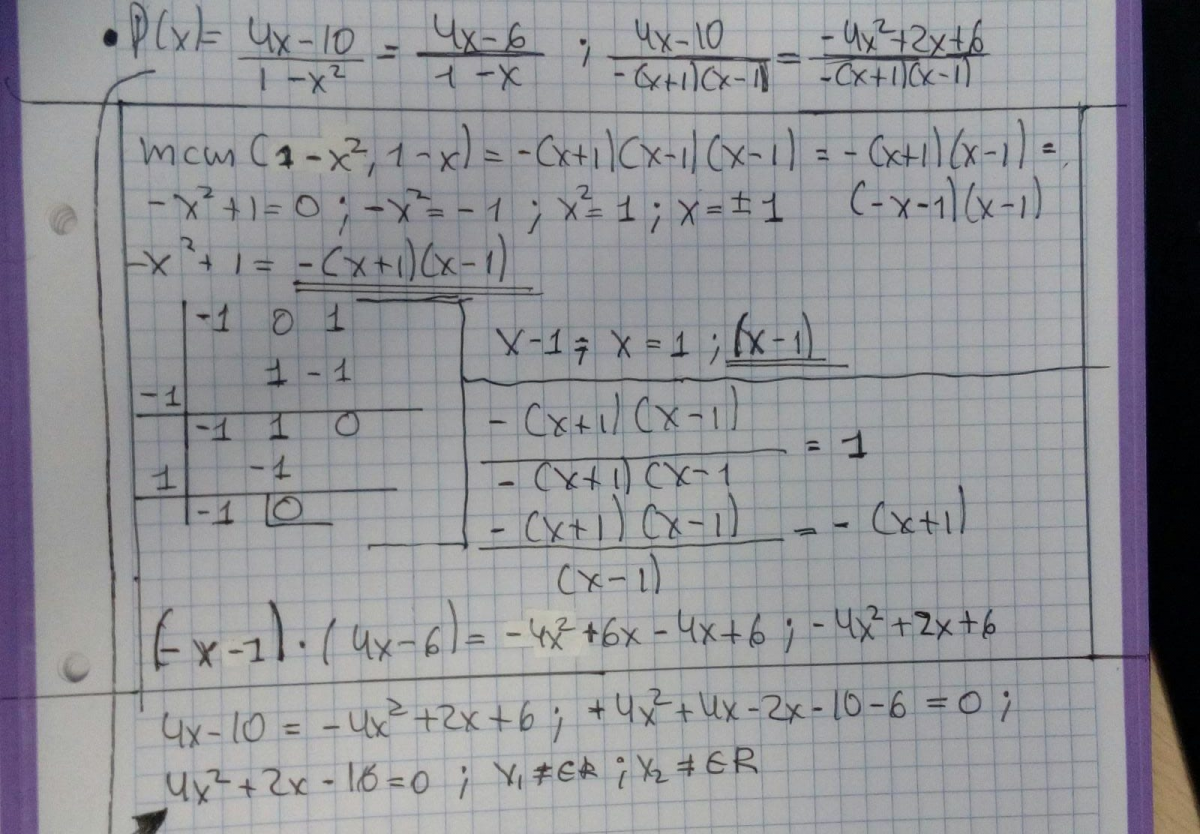 • P(x)= (4x-10)/(1-x²) = (4x-6)/(1-x) ; (4x-10)/(-(x+1)(x-1)) = (-4x²+2x+6)/(-(x+1)(x-1))
mcm (1-x², 1-x) = -(x+1)(x-1)(x-1) = -(x+1)(x-1) =
-x²+1=0 ; -x²=-1 ; x²=1 ; x=±1 (-x-1)(x-1)
-x²+1= -(x+1)(x-1)
-1 0 1
1 -1
-1
-1 1 0
1 -1
-1 0
x-1= ; x=1 ; (x-1)
-(x+1)(x-1)/-(x+1)(x-1 = 1
-(x+1)(x-1)/(x-1) = -(x+1)
(-x-1)·(4x-6)= -4x²+6x-4x+6 ; -4x²+2x+6
4x-10 = -4x²+2x+6 ; +4x²+4x-2x-10-6 = 0 ;
4x²+2x-16=0 ; x₁ ≠ ∈R ; x₂ ≠ ∈R